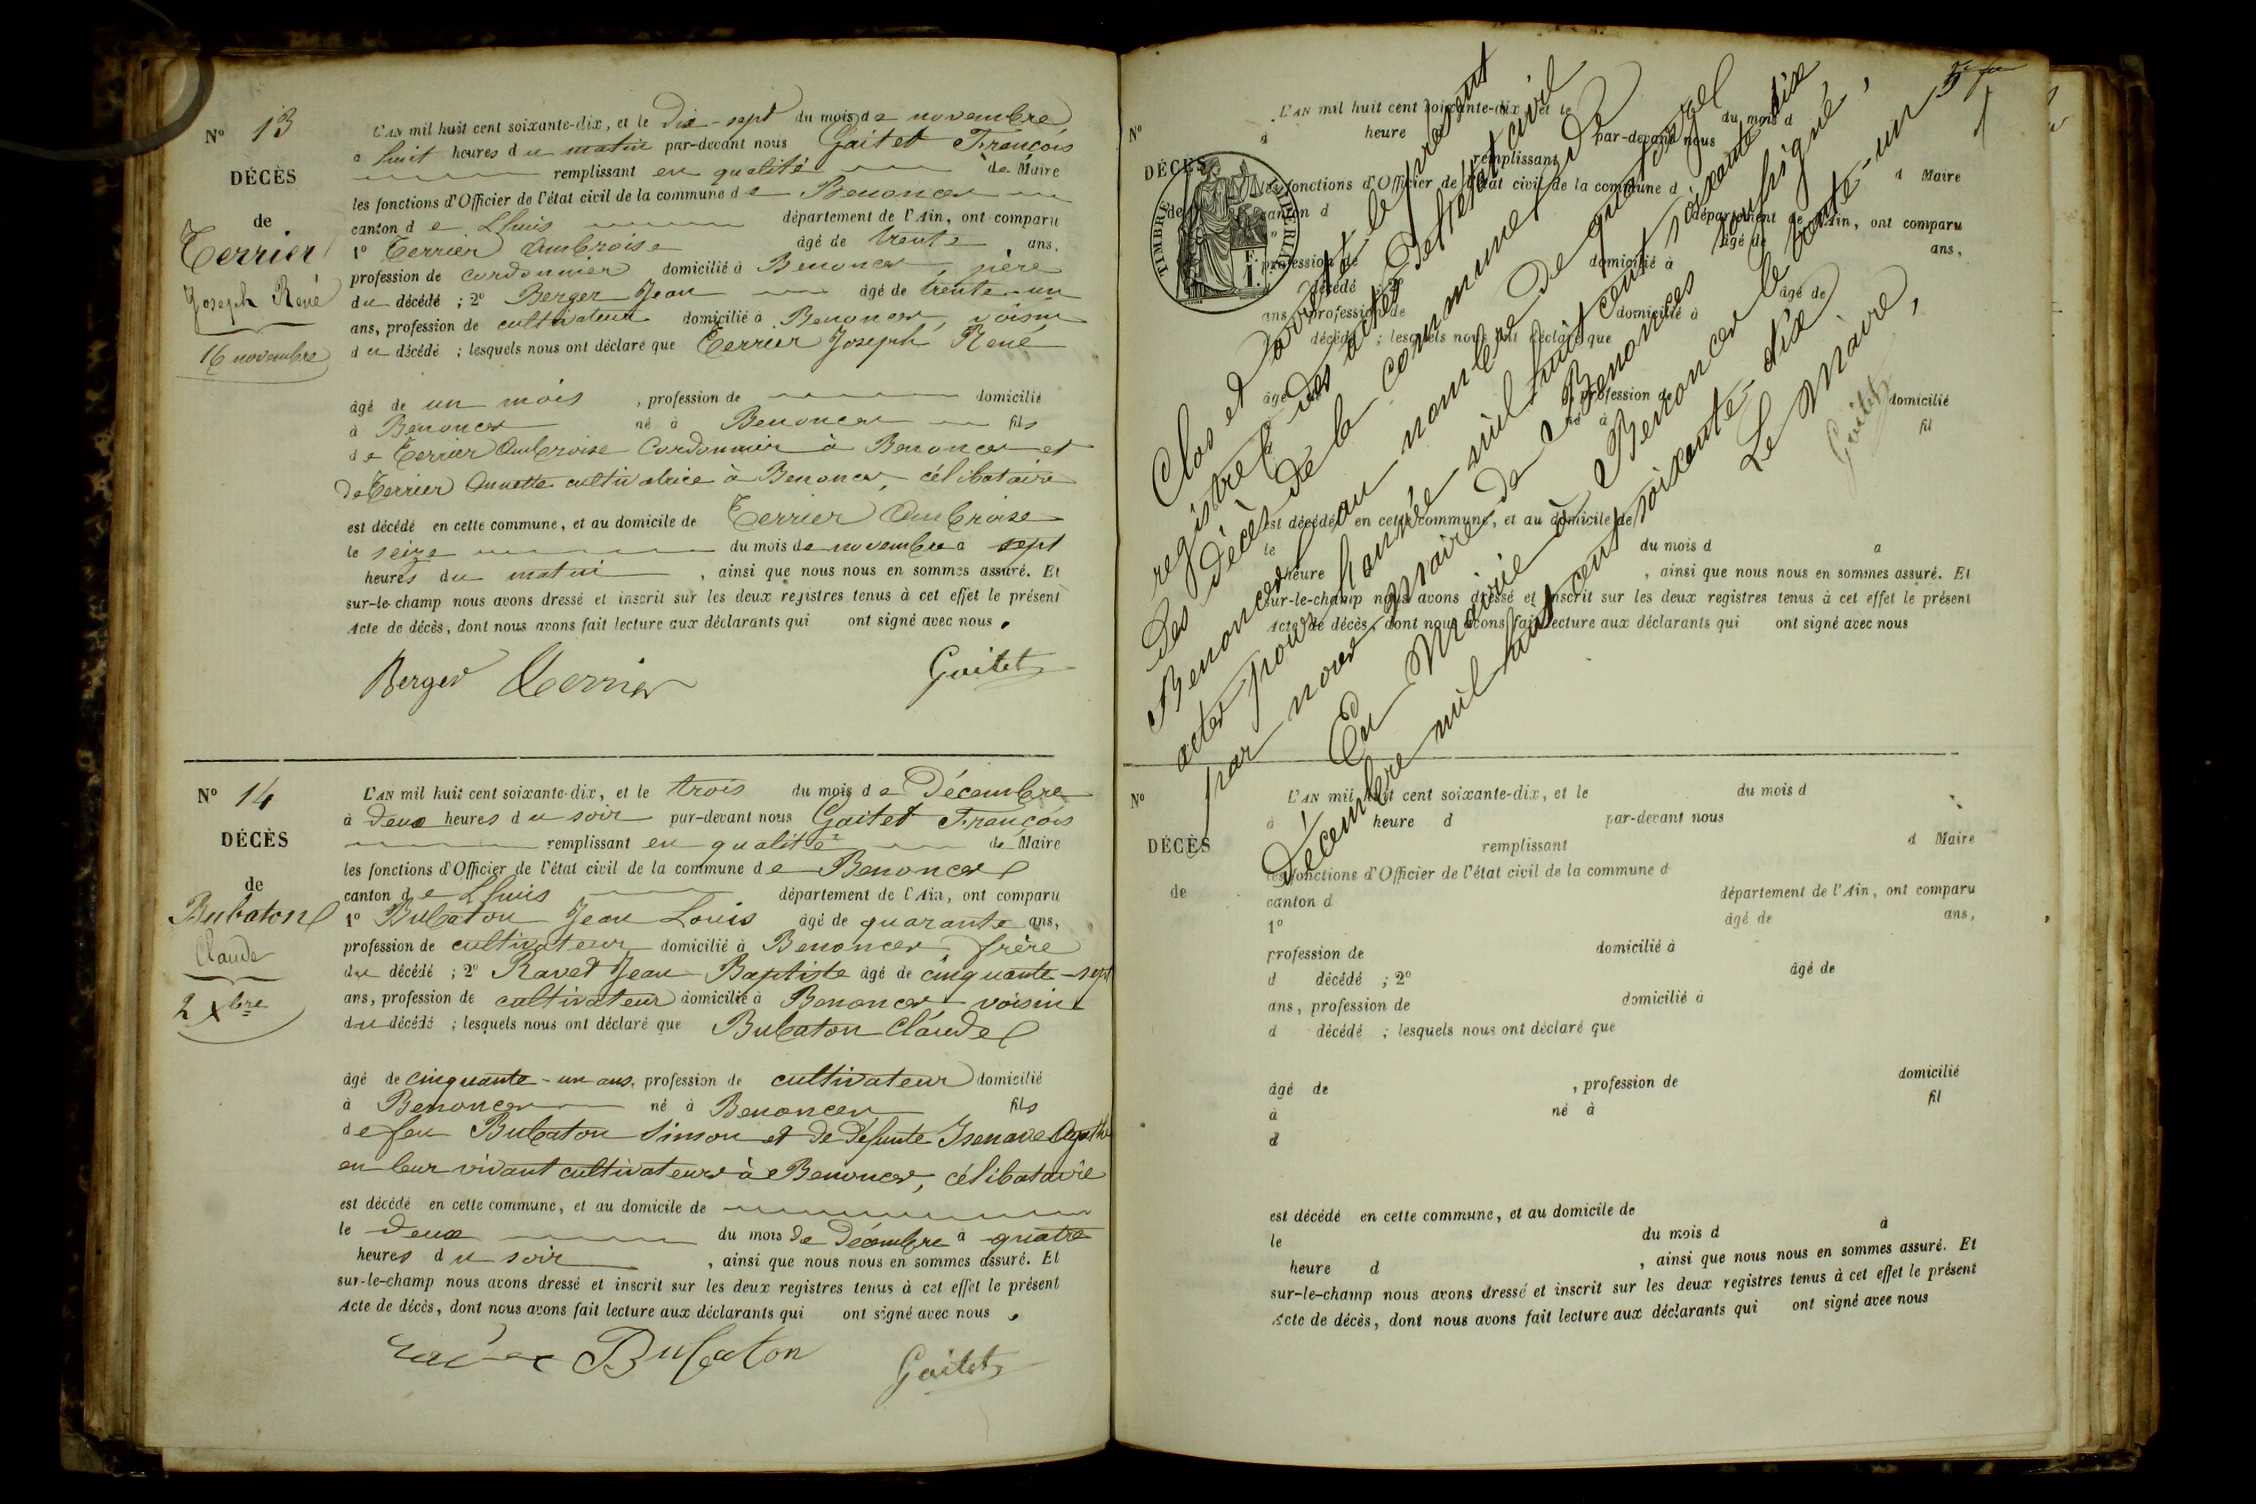 N° 13
DÉCÈS
de
Terrier
Joseph René
16 novembre
L'AN mil huit cent soixante-dix, et le dix-sept du mois de novembre
à huit heures du matin par-devant nous Gaitet François
remplissant en qualité de Maire
les fonctions d'Officier de l'état civil de la commune de Benonces
canton de Lhuis département de l'Ain, ont comparu
1° Terrier Ambroise âgé de trente ans,
profession de cordonnier domicilié à Benonces, père
du décédé ; 2° Berger Jean âgé de trente-un
ans, profession de cultivateur domicilié à Benonces, voisin
du décédé ; lesquels nous ont déclaré que Terrier Joseph René
âgé de un mois , profession de domicilié
à Benonces né à Benonces fils
de Terrier Ambroise Cordonnier à Benonces et
de Terrier Annette cultivatrice à Benonces, célibataire
est décédé en cette commune, et au domicile de Terrier Ambroise
le seize du mois de novembre à sept
heures du matin , ainsi que nous nous en sommes assuré. Et
sur-le-champ nous avons dressé et inscrit sur les deux registres tenus à cet effet le présent
Acte de décès, dont nous avons fait lecture aux déclarants qui ont signé avec nous.
Berger Terrier Gaitet
N° 14
DÉCÈS
de
Bubaton
Claude
2 Xbre
L'AN mil huit cent soixante-dix, et le trois du mois de Décembre
à deux heures du soir par-devant nous Gaitet François
remplissant en qualité de Maire
les fonctions d'Officier de l'état civil de la commune de Benonces
canton de Lhuis département de l'Ain, ont comparu
1° Bubaton Jean Louis âgé de quarante ans,
profession de cultivateur domicilié à Benonces frère
du décédé ; 2° Ravet Jean Baptiste âgé de cinquante-sept
ans, profession de cultivateur domicilié à Benonces voisin
du décédé ; lesquels nous ont déclaré que Bubaton Claude
âgé de cinquante-un ans, profession de cultivateur domicilié
à Benonces né à Benonces fils
de feu Bubaton Simon et de défunte Isenave Agathe
en leur vivant cultivateurs à Benonces, célibataire
est décédé en cette commune, et au domicile de
le deux du mois de Décembre à quatre
heures du soir , ainsi que nous nous en sommes assuré. Et
sur-le-champ nous avons dressé et inscrit sur les deux registres tenus à cet effet le présent
Acte de décès, dont nous avons fait lecture aux déclarants qui ont signé avec nous.
Bubaton Gaitet
N°
DÉCÈS
de
TIMBRE IMPÉRIAL
L'AN mil huit cent soixante-dix, et le du mois d
à heure par-devant nous
remplissant d Maire
les fonctions d'Officier de l'état civil de la commune d
canton d département de l'Ain, ont comparu
âgé de ans,
profession de domicilié à
décédé ; 2° âgé de
ans, profession de domicilié à
décédé ; lesquels nous ont déclaré que
âgé de profession de domicilié
né à fil
est décédé en cette commune, et au domicile de
le du mois d à
heure , ainsi que nous nous en sommes assuré. Et
sur-le-champ nous avons dressé et inscrit sur les deux registres tenus à cet effet le présent
Acte de décès, dont nous avons fait lecture aux déclarants qui ont signé avec nous
Clos et arrêté le présent
registre des actes de l'état civil
des décès de la commune de
Benonces au nombre de quatorze
actes pour l'année mil huit cent soixante dix
par nous maire de Benonces soussigné,
En Mairie à Benonces le trente-un
Décembre mil huit cent soixante-dix
Le Maire,
Gaitet
N°
DÉCÈS
de
L'AN mil huit cent soixante-dix, et le du mois d
à heure d par-devant nous
remplissant d Maire
les fonctions d'Officier de l'état civil de la commune d
canton d département de l'Ain, ont comparu
1° âgé de ans,
profession de domicilié à
d décédé ; 2° âgé de
ans, profession de domicilié à
d décédé ; lesquels nous ont déclaré que
âgé de , profession de domicilié
à né à fil
d
est décédé en cette commune, et au domicile de
le du mois d à
heure d , ainsi que nous nous en sommes assuré. Et
sur-le-champ nous avons dressé et inscrit sur les deux registres tenus à cet effet le présent
Acte de décès, dont nous avons fait lecture aux déclarants qui ont signé avec nous